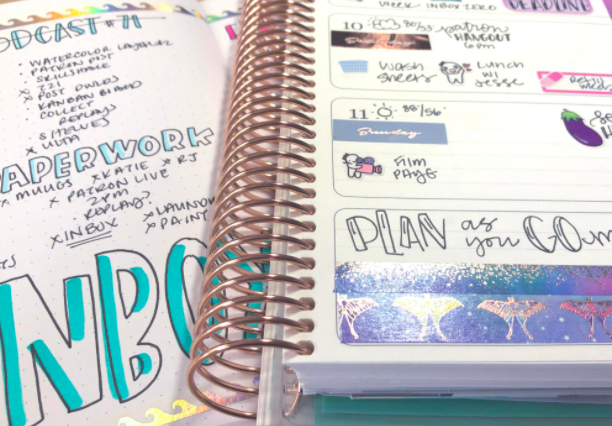 ODCAST #71
WATERCOLOR
PATRON POST
SKILLSHARE
x 221
x POST OWLDS
KANBAN BOARD
COLLECT
REPLAYS
SHELVES
x ULTA
APERWORK
x MUGGS x KATIE x RJ
x PATRON LIVE
2PM
REPLAYS?
x INBOX
x PAINT
INBO
WEEK INBOX ZERO
DEADLINE
10 80/55 patron
HANGOUT
6pm
Wash
sheets
Lunch
w/
Jesse
11 88/56
Sunday
Film
PAYG
PLAN as
you GO